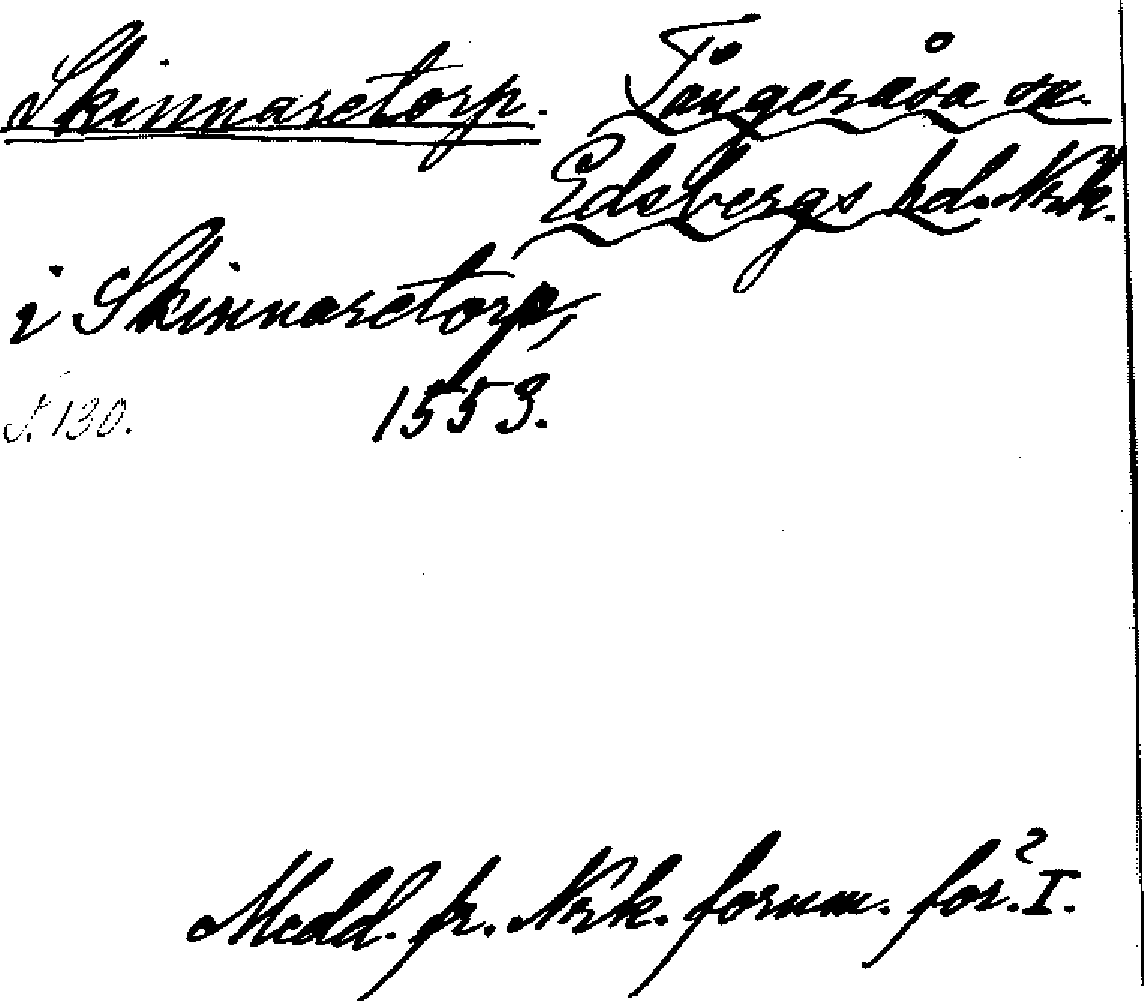 Skinnaretorp. Tångeråsa sn.
Edsbergs hd. Nrk.
i Skinnaretorp,
s. 130. 1553.
Medd. fr. Nrk. fornm. för. I.